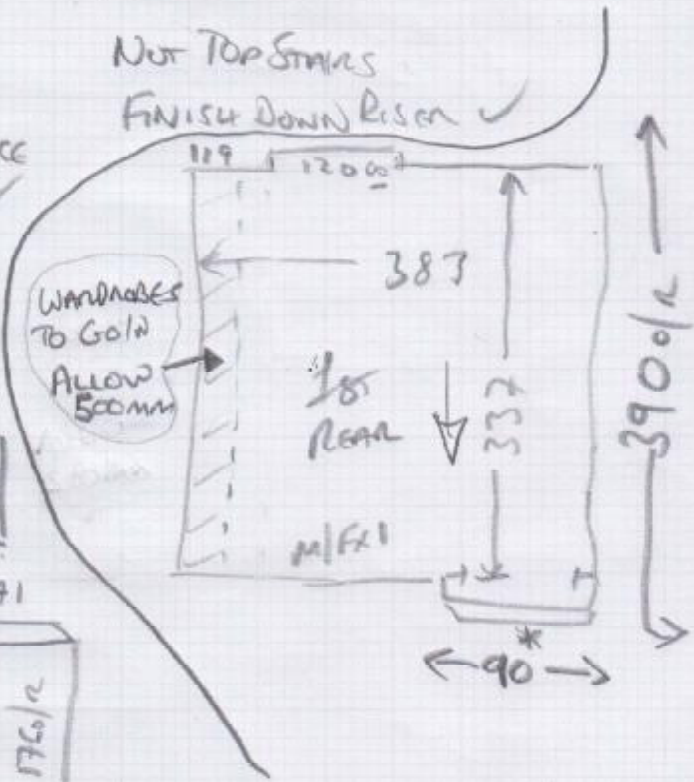 NOT TOP STAIRS
FINISH DOWN RISER ✓
CE
119
1200
383
WARDROBES
TO GO IN
ALLOW
500MM
1ST
REAR
337
390 o/R
M/FX1
71
* 
90
1760/R